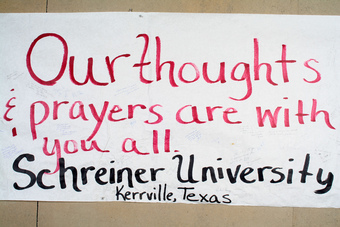 Our thoughts
& prayers are with
you all.
Schreiner University
Kerrville, Texas